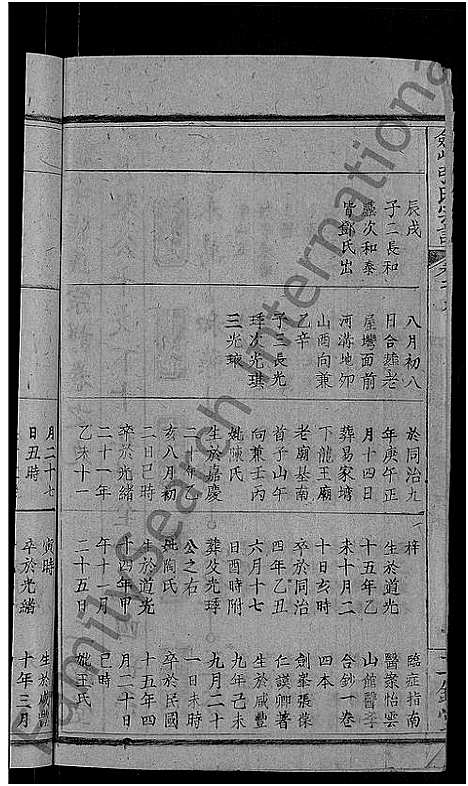 辰戌
子二長和
盛次和泰
皆鄧氏出
八月初八
日合葬老
屋灣面前
河溝地卯
山酉向兼
乙辛
子三長光
次光琪
三光
於同治九
年庚午正
月十四日
葬易家塆
下龍王廟
老廟基南
首子山午
向兼壬丙
妣陳氏
生於嘉慶
二十年乙
亥八月初
二日巳時
卒於光緒
二十一年
乙未十一
月二十七
日丑時
梓
生於道光
十五年乙
未十月二
十日亥時
卒於同治
四年乙丑
六月十七
日酉時附
葬父光
公之右
妣陶氏
生於道光
十四年甲
午十一月
二十五日
寅時
卒於光緒
臨症指南
醫案怡雲
山館醫學
合鈔一卷
四本
劍峯張葆
仁謨卿著
生於咸豐
九年己未
九月二十
一日未時
卒於民國
十五年四
月二十日
巳時
妣王氏
生於咸豐
十年三月
FamilySearch International